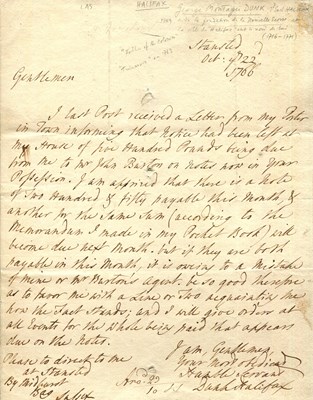 HALIFAX
George Montagu DUNK
Stansted
Oct: ye 22
1766
Gentlemen
I last Post received a Letter from my Porter
in Town informing that Notice had been left at
my House of five Hundred Pounds being due
from me to Mr John Barton on Notes now in Your
Possession. I am apprized that there is a Note
of Two Hundred & fifty payable this Month, &
another for the Same Sum (according to the
Memorandum I made in my Pocket Book) will
become due next Month. but if they are both
payable in this Month, it is owing to a Mistake
of mine or Mr Barton's Agent. be so good therefore
as to favor me with a Line or two acquainting me
how the Fact Stands; and I will give order at
all Events for the whole being paid that appears
due on the Notes.
I am Gentlemen
Your most Obedient
Humble Servant
Dunk Halifax
Please to direct to me
at Stansted
By Midhurst
Sussex